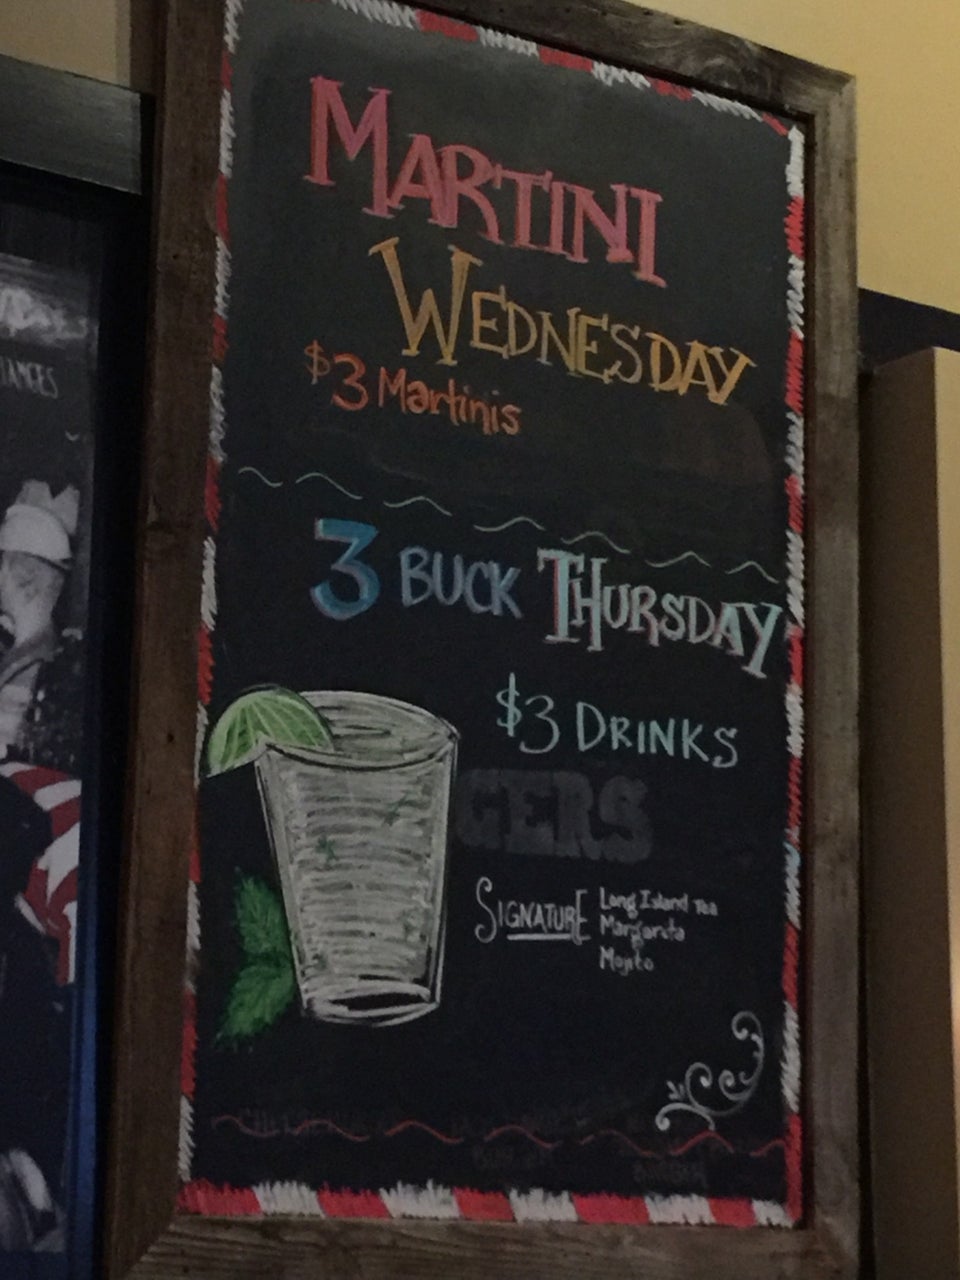 MARTINI
WEDNESDAY
$3 Martinis
3 BUCK THURSDAY
$3 DRINKS
GERS
SIGNATURE
Long Island Tea
Margarita
Mojito